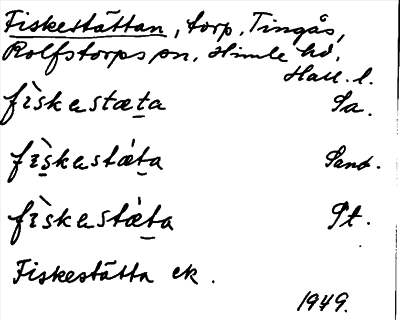 Fiskestättan, torp, Tingås,
Rolfstorps sn, Himle hd.
Hall. l.
fìskestæta Sa.
fìskestæ̀ta Sand.
fìskestæ̀ta Pt.
Fiskestätta ek.
1949.